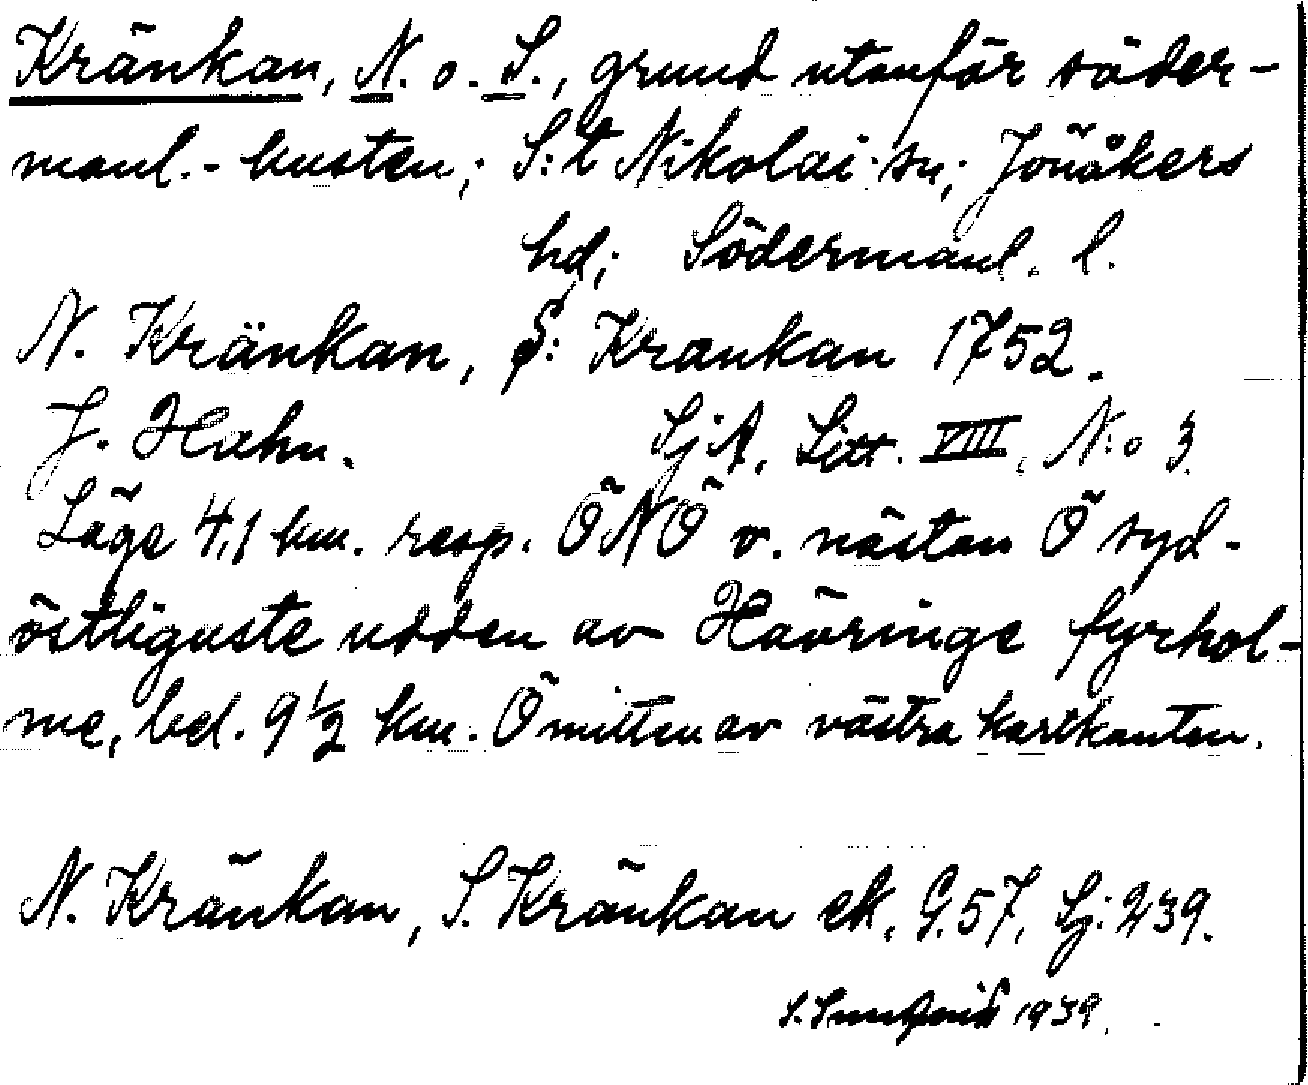 Kränkan, N. o. S., grund utanför söder-
manl.-kusten; S:t Nikolai sn; Jönåkers
hd; Södermanl. l.
N. Kränkan, S: Krankan 1752.
J. Hahn. SjA, Litt. VIII, N:o 3.
Läge 4,1 km. resp. ÖNÖ v. nästan Ö syd-
östliguste udden av Hävringe fyrhol-
me, bel. 9 1/2 km. Ö mitten av västra kartkanten.
N. Kränkan, S. Kränkan ek. G. 57, Sj: 239.
1939.